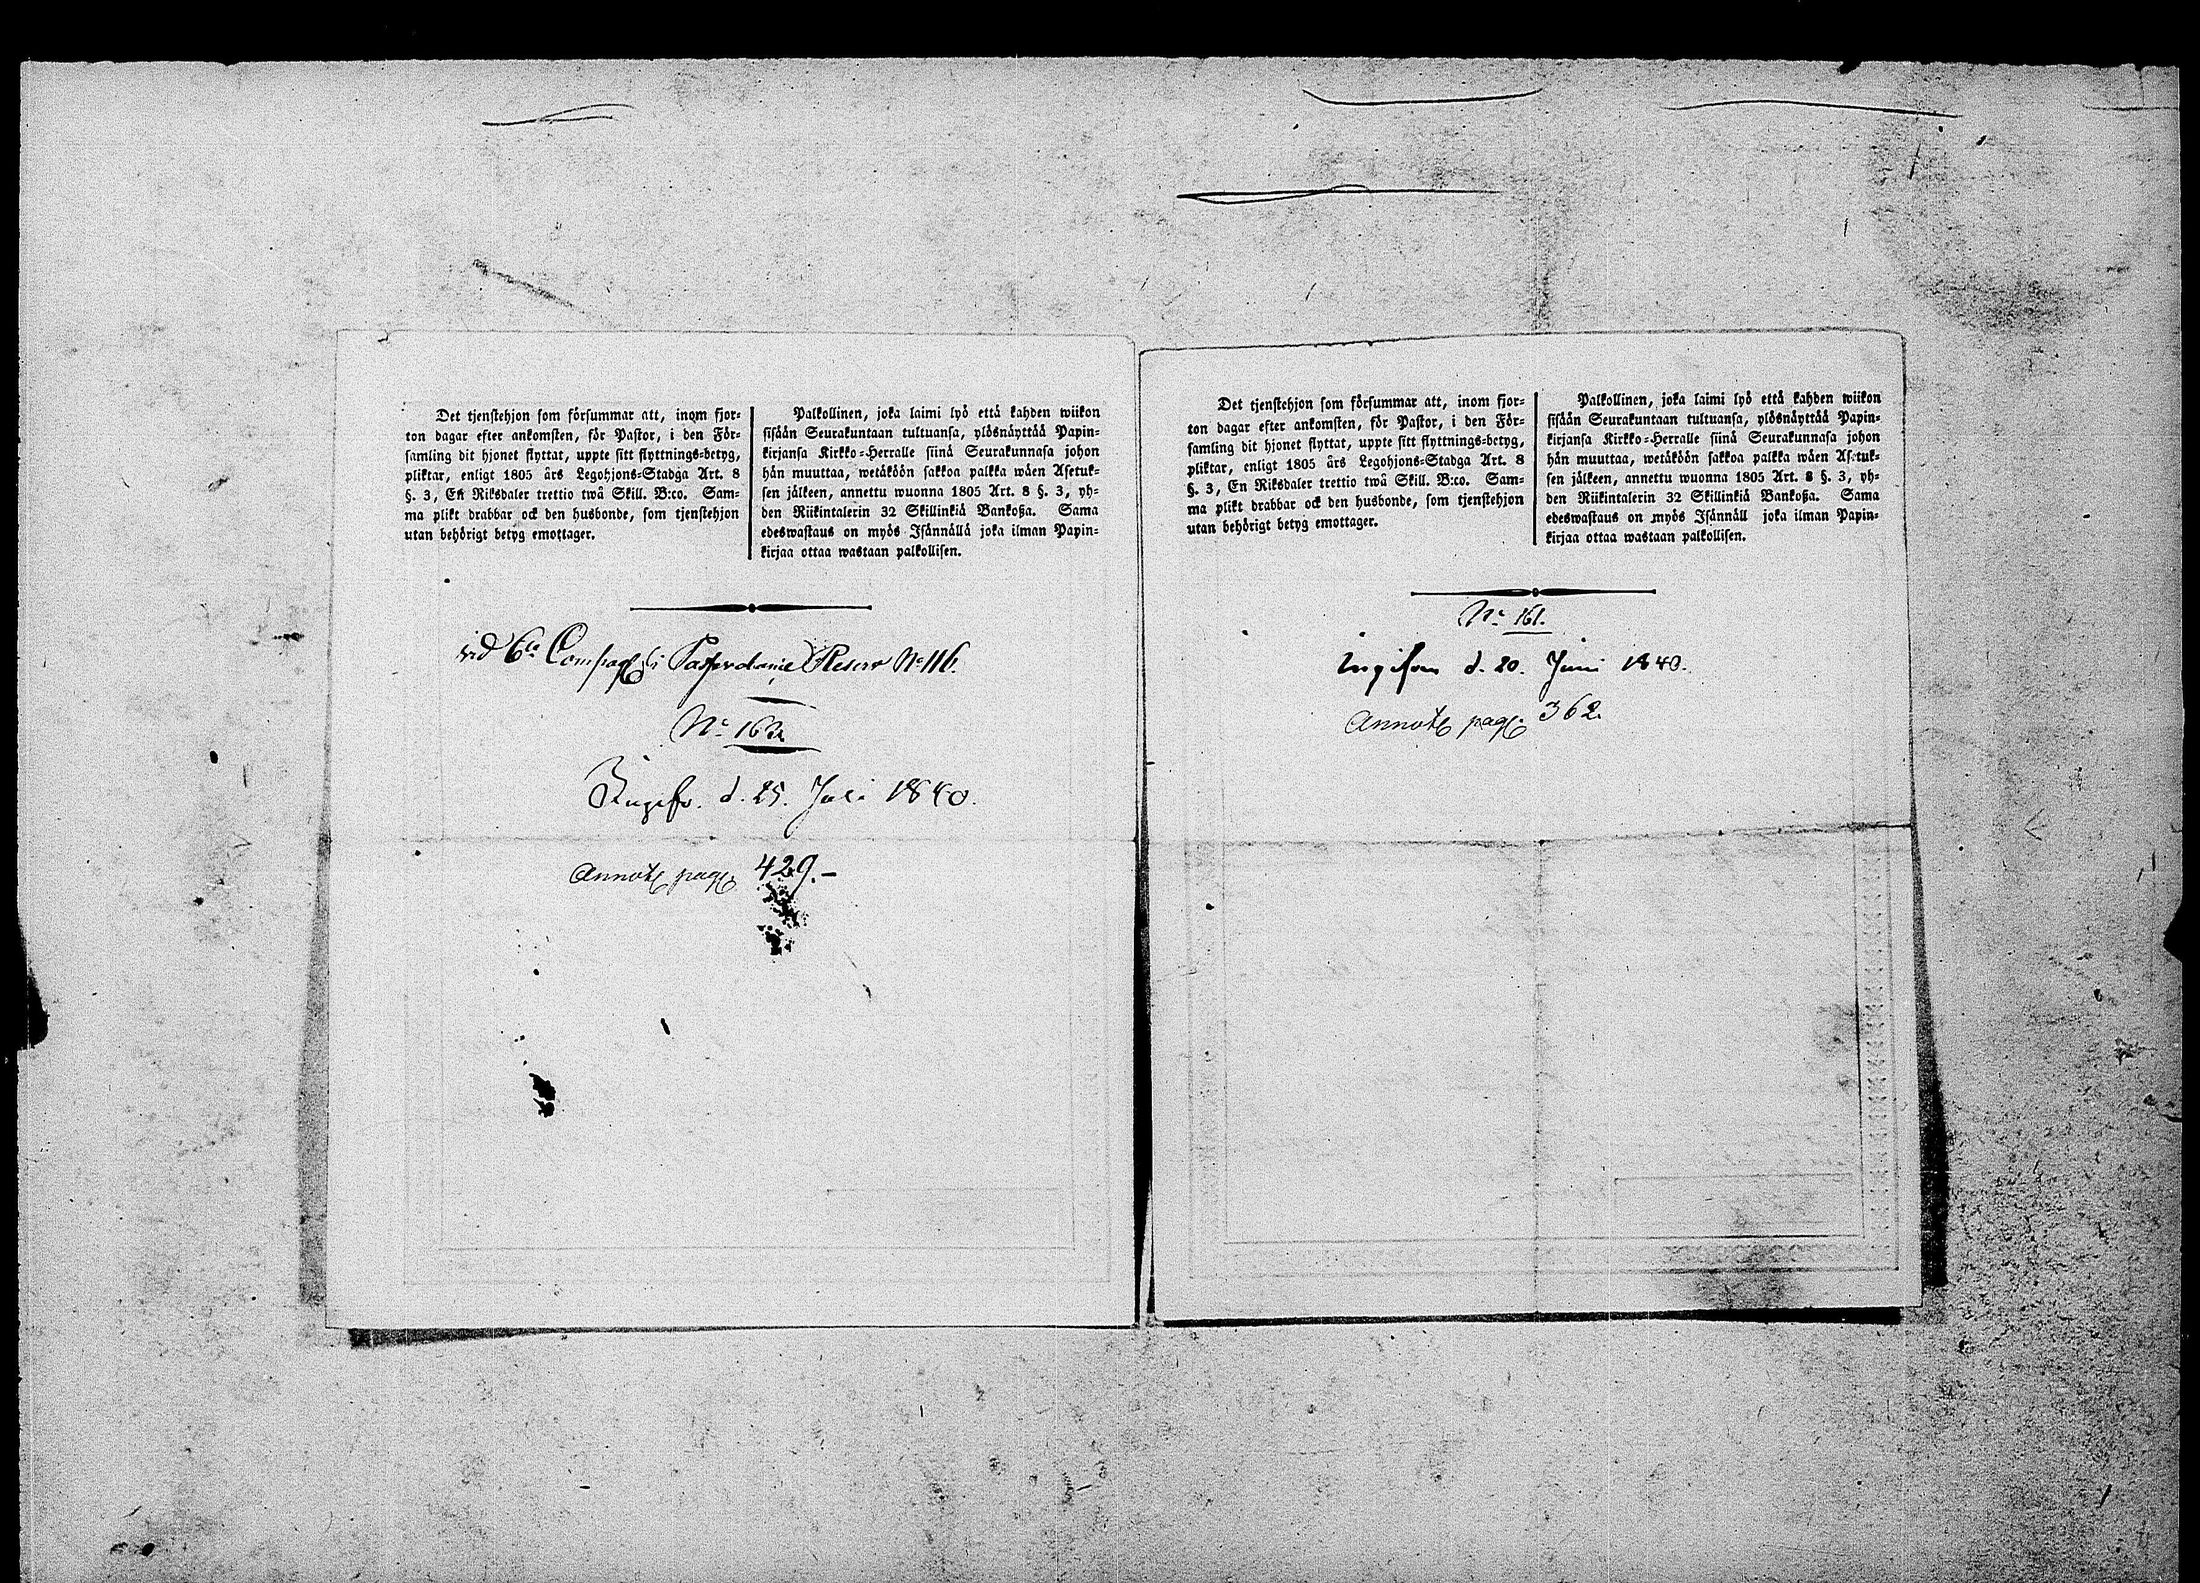 Det tjenstehjon som försummar att, inom fjor-
ton dagar efter ankomsten, för Pastor, i den För-
samling dit hjonet flyttat, uppte sitt flyttnings-betyg,
pliktar, enligt 1805 års Legohjons-Stadga Art. 8
§. 3, En Riksdaler trettio twå Skill. B:co. Sam-
ma plikt drabbar ock den husbonde, som tjenstehjon
utan behörigt betyg emottager.
Palkollinen, joka laimi lyö että kahden wiikon
sisään Seurakuntaan tultuansa, ylösnäyttää Papin-
kirjansa Kirkko-Herralle siinä Seurakunnasa johon
hän muuttaa, wetäköön sakkoa palkka wäen Asetuk-
sen jälkeen, annettu wuonna 1805 Art. 8 §. 3, yh-
den Riikintalerin 32 Skillinkiä Bankoßa. Sama
edeswastaus on myös Isännällä joka ilman Papin-
kirjaa ottaa wastaan palkollisen.
6te Reserv No 116.
No 163.
d. 25. Juli 1840.
Annot. pag. 429.-
Det tjenstehjon som försummar att, inom fjor-
ton dagar efter ankomsten, för Pastor, i den För-
samling dit hjonet flyttat, uppte sitt flyttnings-betyg,
pliktar, enligt 1805 års Legohjons-Stadga Art. 8
§. 3, En Riksdaler trettio twå Skill. B:co. Sam-
ma plikt drabbar ock den husbonde, som tjenstehjon
utan behörigt betyg emottager.
Palkollinen, joka laimi lyö että kahden wiikon
sisään Seurakuntaan tultuansa, ylösnäyttää Papin-
kirjansa Kirkko-Herralle siinä Seurakunnasa johon
hän muuttaa, wetäköön sakkoa palkka wäen Asetuk-
sen jälkeen, annettu wuonna 1805 Art. 8 §. 3, yh-
den Riikintalerin 32 Skillinkiä Bankoßa. Sama
edeswastaus on myös Isännäll joka ilman Papin-
kirjaa ottaa wastaan palkollisen.
No 161.
Ingifven d. 20. Juni 1840.
Annot. pag. 362.